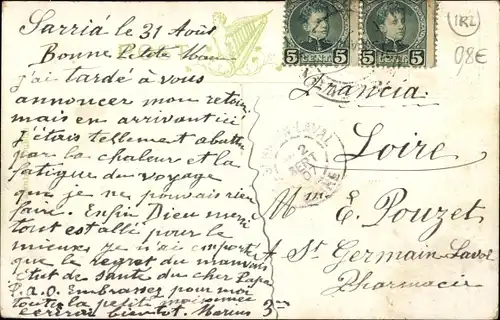 Sarriá le 31 Août
Bonne Petite Mam
j'ai tardé à vous
annoncer mon retour
mais en arrivant ici
j'étais tellement abattu
par la chaleur et la
fatigue du voyage
que je ne pouvais rien
faire. Enfin Dieu merci
tout est allé pour le
mieux je n'ai emporté
que le regret du mauvais
état de santé du cher Papa
P.a.O. Embrassez pour moi
toute la petite maisonnée
écrirai bientôt. Marius
5 5 5 5
(IRL)
0,8€
Francia
Loire
LAVAL
2
SEPT
07
LOIRE
Mme E. Pouzet
A St Germain Laval
Pharmacie